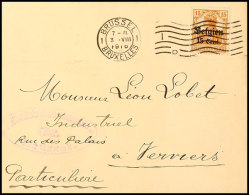 BRUSSEL
7-8
1 3-VIII 1
1916
BRUXELLES
15
Belgien
15 Cent.
Monsieur Léon Lobet
Industriel
Rue des Palais
à Verviers
Particulière